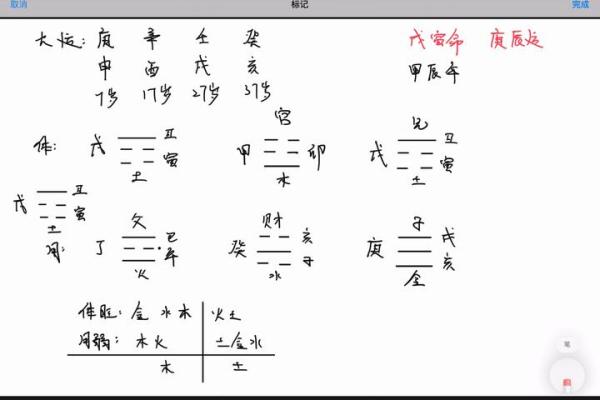 取消 标记 完成
大运: 庚 辛 壬 癸 戊寅命 庚辰运
申 酉 戌 亥 甲辰年
7岁 17岁 27岁 37岁
官 兄
体: 戊 丑 寅 土 甲 卯 水 戊 丑 寅 土
戊 丑 寅 土
父 财 子
用: 丁 巳 午 火 癸 亥 子 水 庚 戌 亥 金
体旺: 金 水 木 火土
用弱: 木 火 土金水
木 土
笔